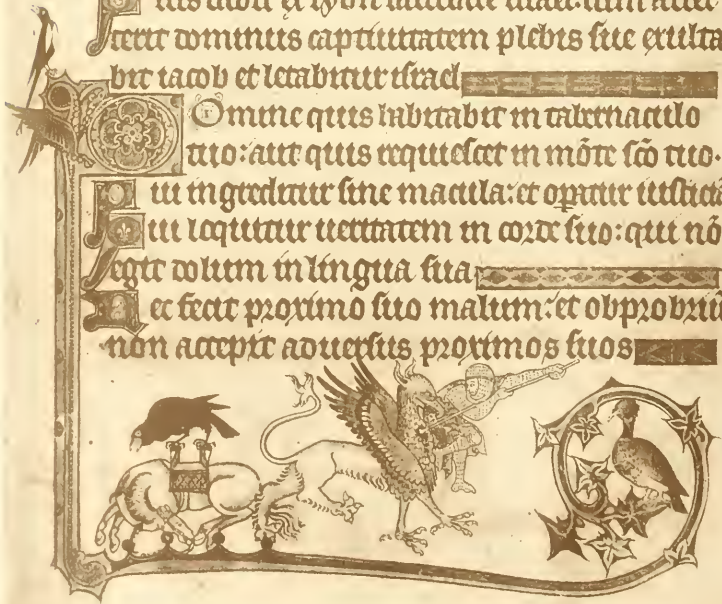 Quis dabit ex syon salutare israel: cum auer
terit dominus captiuitatem plebis sue exulta
bit iacob et letabitur israel
Domine quis habitabit in tabernaculo
tuo: aut quis requiescet in mōte sc̄o tuo.
Qui ingreditur sine macula: et opatur iusticiā
Qui loquitur ueritatem in corde suo: qui nō
egit dolum in lingua sua
Nec fecit proximo suo malum: et obprobriū
non accepit aduersus proximos suos